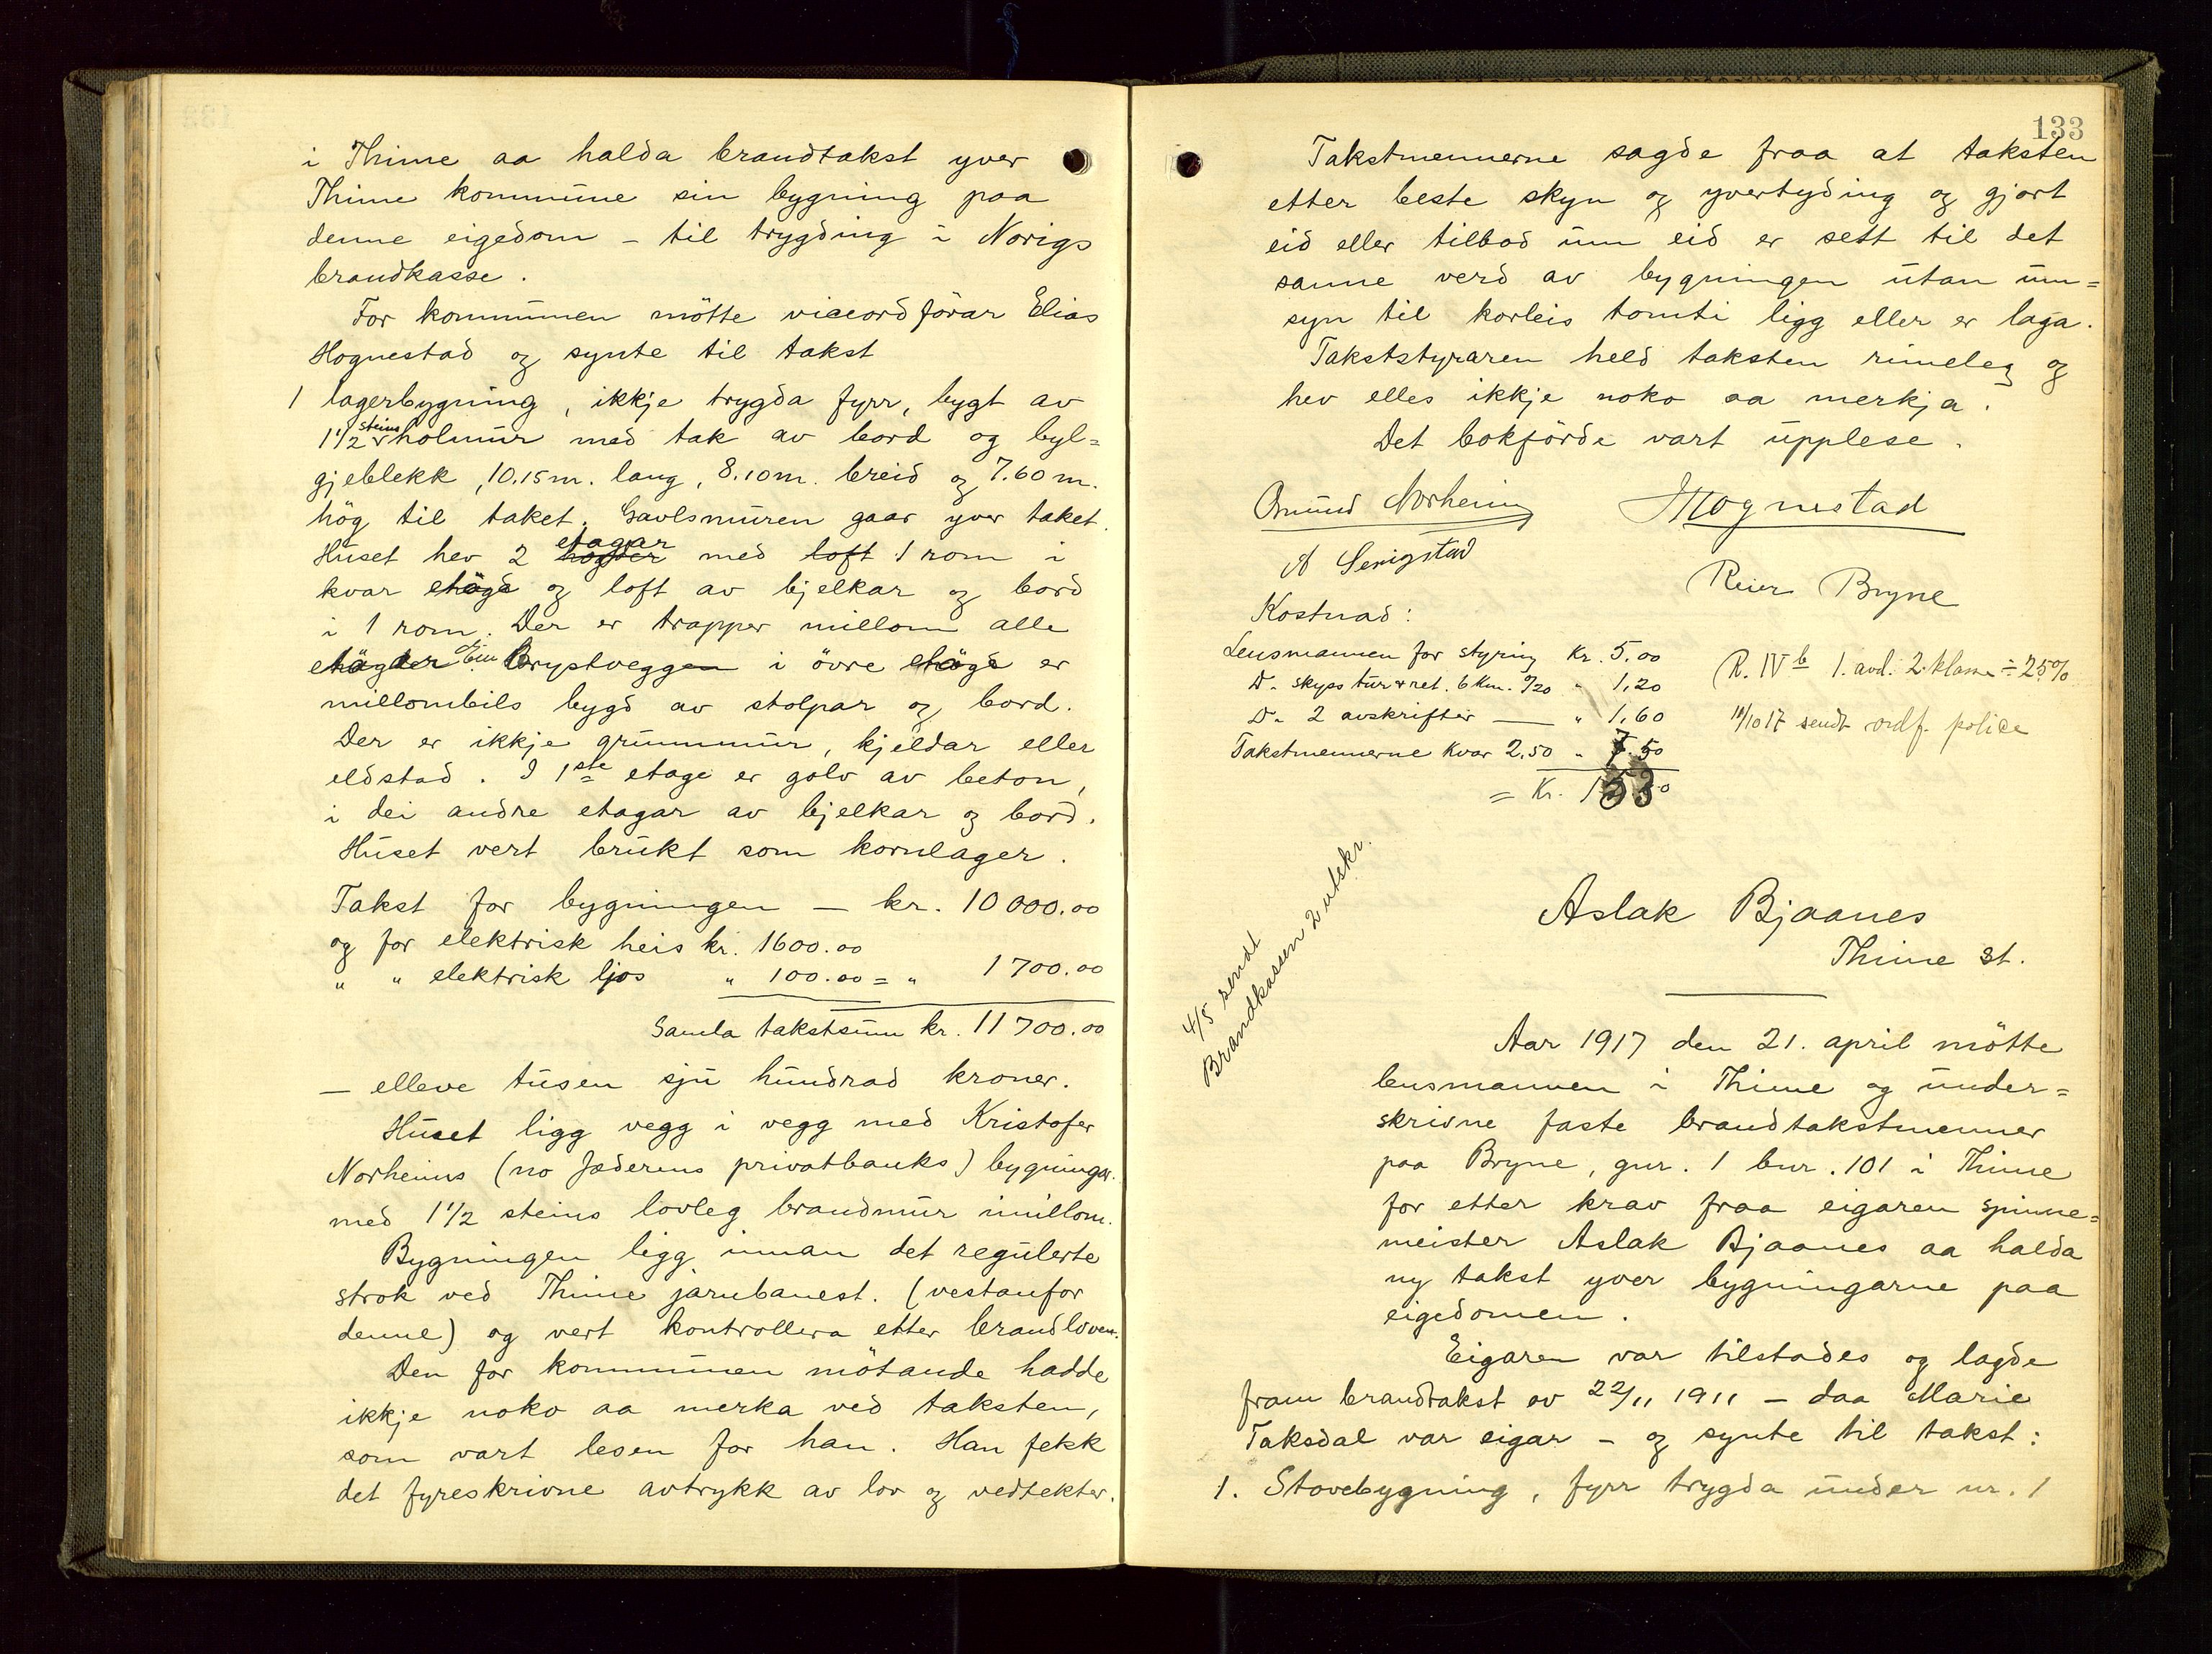 i Thime aa halda brandtakst yver
Thime kommune sin bygning paa
denne eigedom – til trygding i Norigs
brandkasse.
For kommunen mötte viceordförar Elias
Hognestad og synte til takst
1 lagerbygning, ikkje trygda fyrr, bygt av
1 1/2 steins holmur med tak av bord og byl=
gjeblekk, 10.15 m. lang, 8.10 m. breid og 7.60 m.
hög til taket. Gavlsmuren gaar yver taket.
Huset hev 2 etagar med loft 1 rom i
kvar etage og loft av bjelkar og bord
i 1 rom. Der er trapper millom alle
etagar. Ein Brystvegg i övre etage er
millombils bygd av stolpar og bord.
Der er ikkje grunnmur, kjeldar eller
eldstad. I 1ste etage er golv av beton,
i dei andre etagar av bjelkar og bord.
Huset vert brukt som kornlager.
Takst for bygningen — kr. 10 000.00
og for elektrisk heis kr. 1600.00
" " elektrisk ljos " 100.00 = " 1 700.00
Samla takstsum kr. 11 700.00
— elleve tusen sju hundrad kroner.
Huset ligg vegg i vegg med Kristofer
Norheims (no Jæderens privatbanks) bygningar.
med 1 1/2 steins lovleg brandmur imillom.
Bygningen ligg innan det regulerte
strok ved Thime jarnbanest. (vestanfor
denne) og vert kontrollera etter brandloven.
Den for kommunen mötande hadde
ikkje noko aa merka ved taksten,
som vart lesen for han. Han fekk
det fyreskrivne avtrykk av lov og vedtekter.
133
Takstmennerne sagde fraa at taksten
etter beste skyn og yvertyding og gjort
eid eller tilbod um eid er sett til det
sanne verd av bygningen utan um=
syn til korleis tomti ligg eller er laga.
Takststyraren held taksten rimeleg og
hev elles ikkje noko aa merkja.
Det bokförde vart upplese.
Omund Norheim Hognestad
A Serigstad
Reier Bryne
Kostnad:
Lensmannen for styring Kr. 5,00
D– skyss tur & ret. 6 Km. á /20 " 1,20
D– 2 avskrifter — " 1,60
Takstmennerne kvar 2.50 " 7.50
= Kr. 15.30
R. IV b 1. avd. 2. klasse ÷ 25%
18/10 17 sendt ordf. police
4/5 sendt
Brandkassen 2 utskr.
Aslak Bjaanes
Thime st.
Aar 1917 den 21. april mötte
lensmannen i Thime og under=
skrivne faste brandtakstmenner
paa Bryne, gnr. 1 bnr. 101 i Thime
for etter krav fraa eigaren spinne=
meister Aslak Bjaanes aa halda
ny takst yver bygningarne paa
eigedomen.
Eigaren var tilstades og lagde
fram brandtakst av 22/11 1911 – daa Marie
Taksdal var eigar – og synte til takst:
1. Stovebygning, fyrr trygda under nr. 1